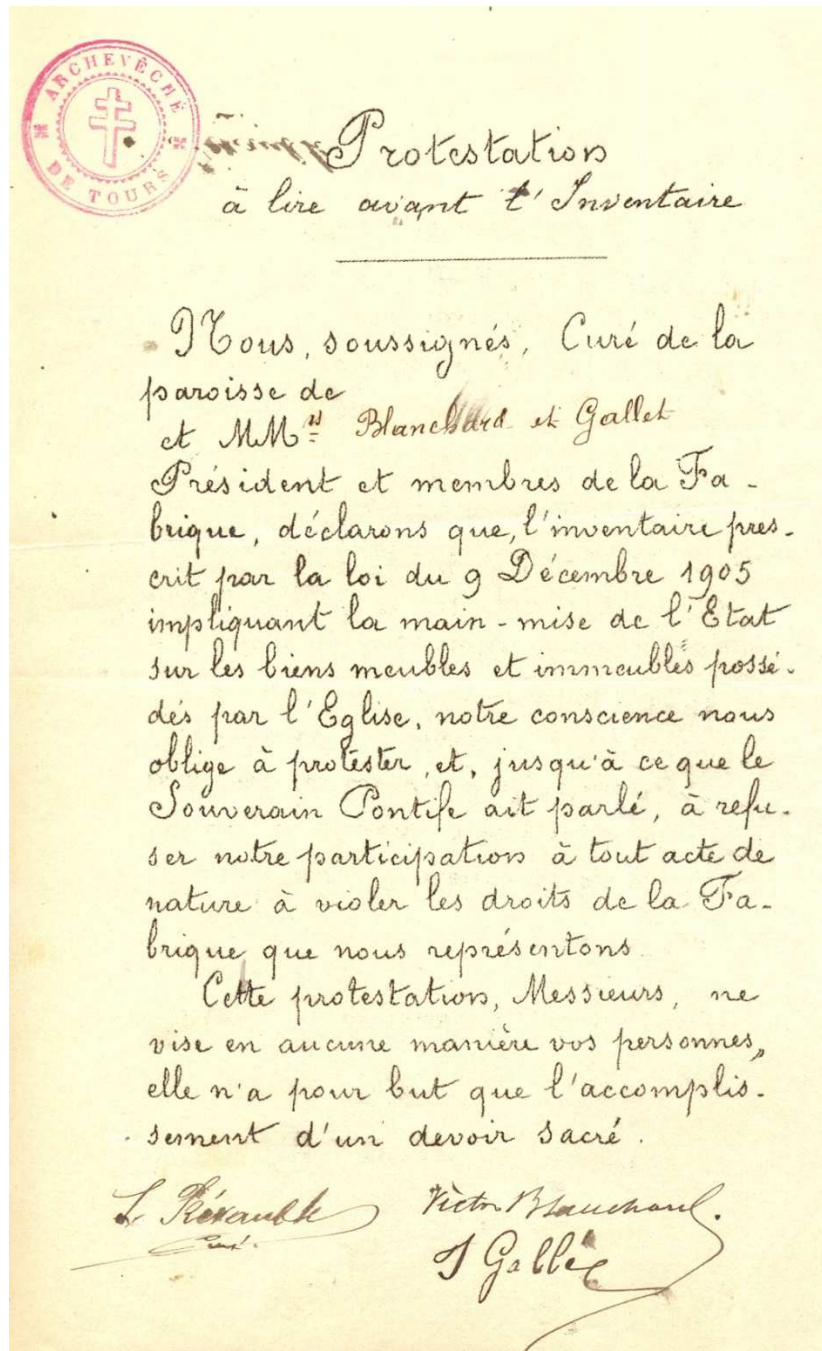 ARCHEVÊCHÉ
DE TOURS
Protestation
à lire avant l'Inventaire
Nous, soussignés, Curé de la
paroisse de
et MMrs Blanchard et Gallet
Président et membres de la Fa-
brique, déclarons que, l'inventaire pres-
crit par la loi du 9 Décembre 1905
impliquant la main-mise de l'Etat
sur les biens meubles et immeubles possé-
dés par l'Eglise, notre conscience nous
oblige à protester, et, jusqu'à ce que le
Souverain Pontife ait parlé, à refu-
ser notre participation à tout acte de
nature à violer les droits de la Fa-
brique que nous représentons.
Cette protestation, Messieurs, ne
vise en aucune manière vos personnes,
elle n'a pour but que l'accomplis-
sement d'un devoir sacré.
Victor Blanchard.
Curé.